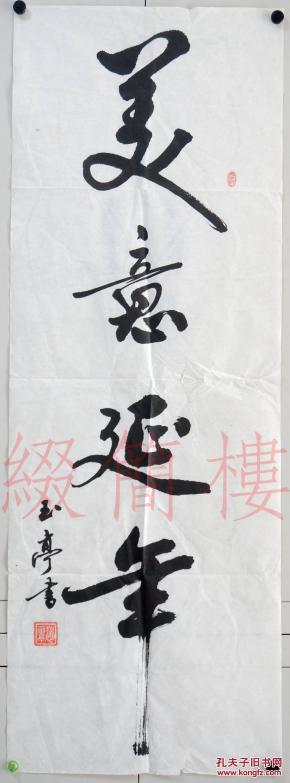 美意延年
玉亭书
綴簡樓
孔夫子旧书网
www.kongfz.com